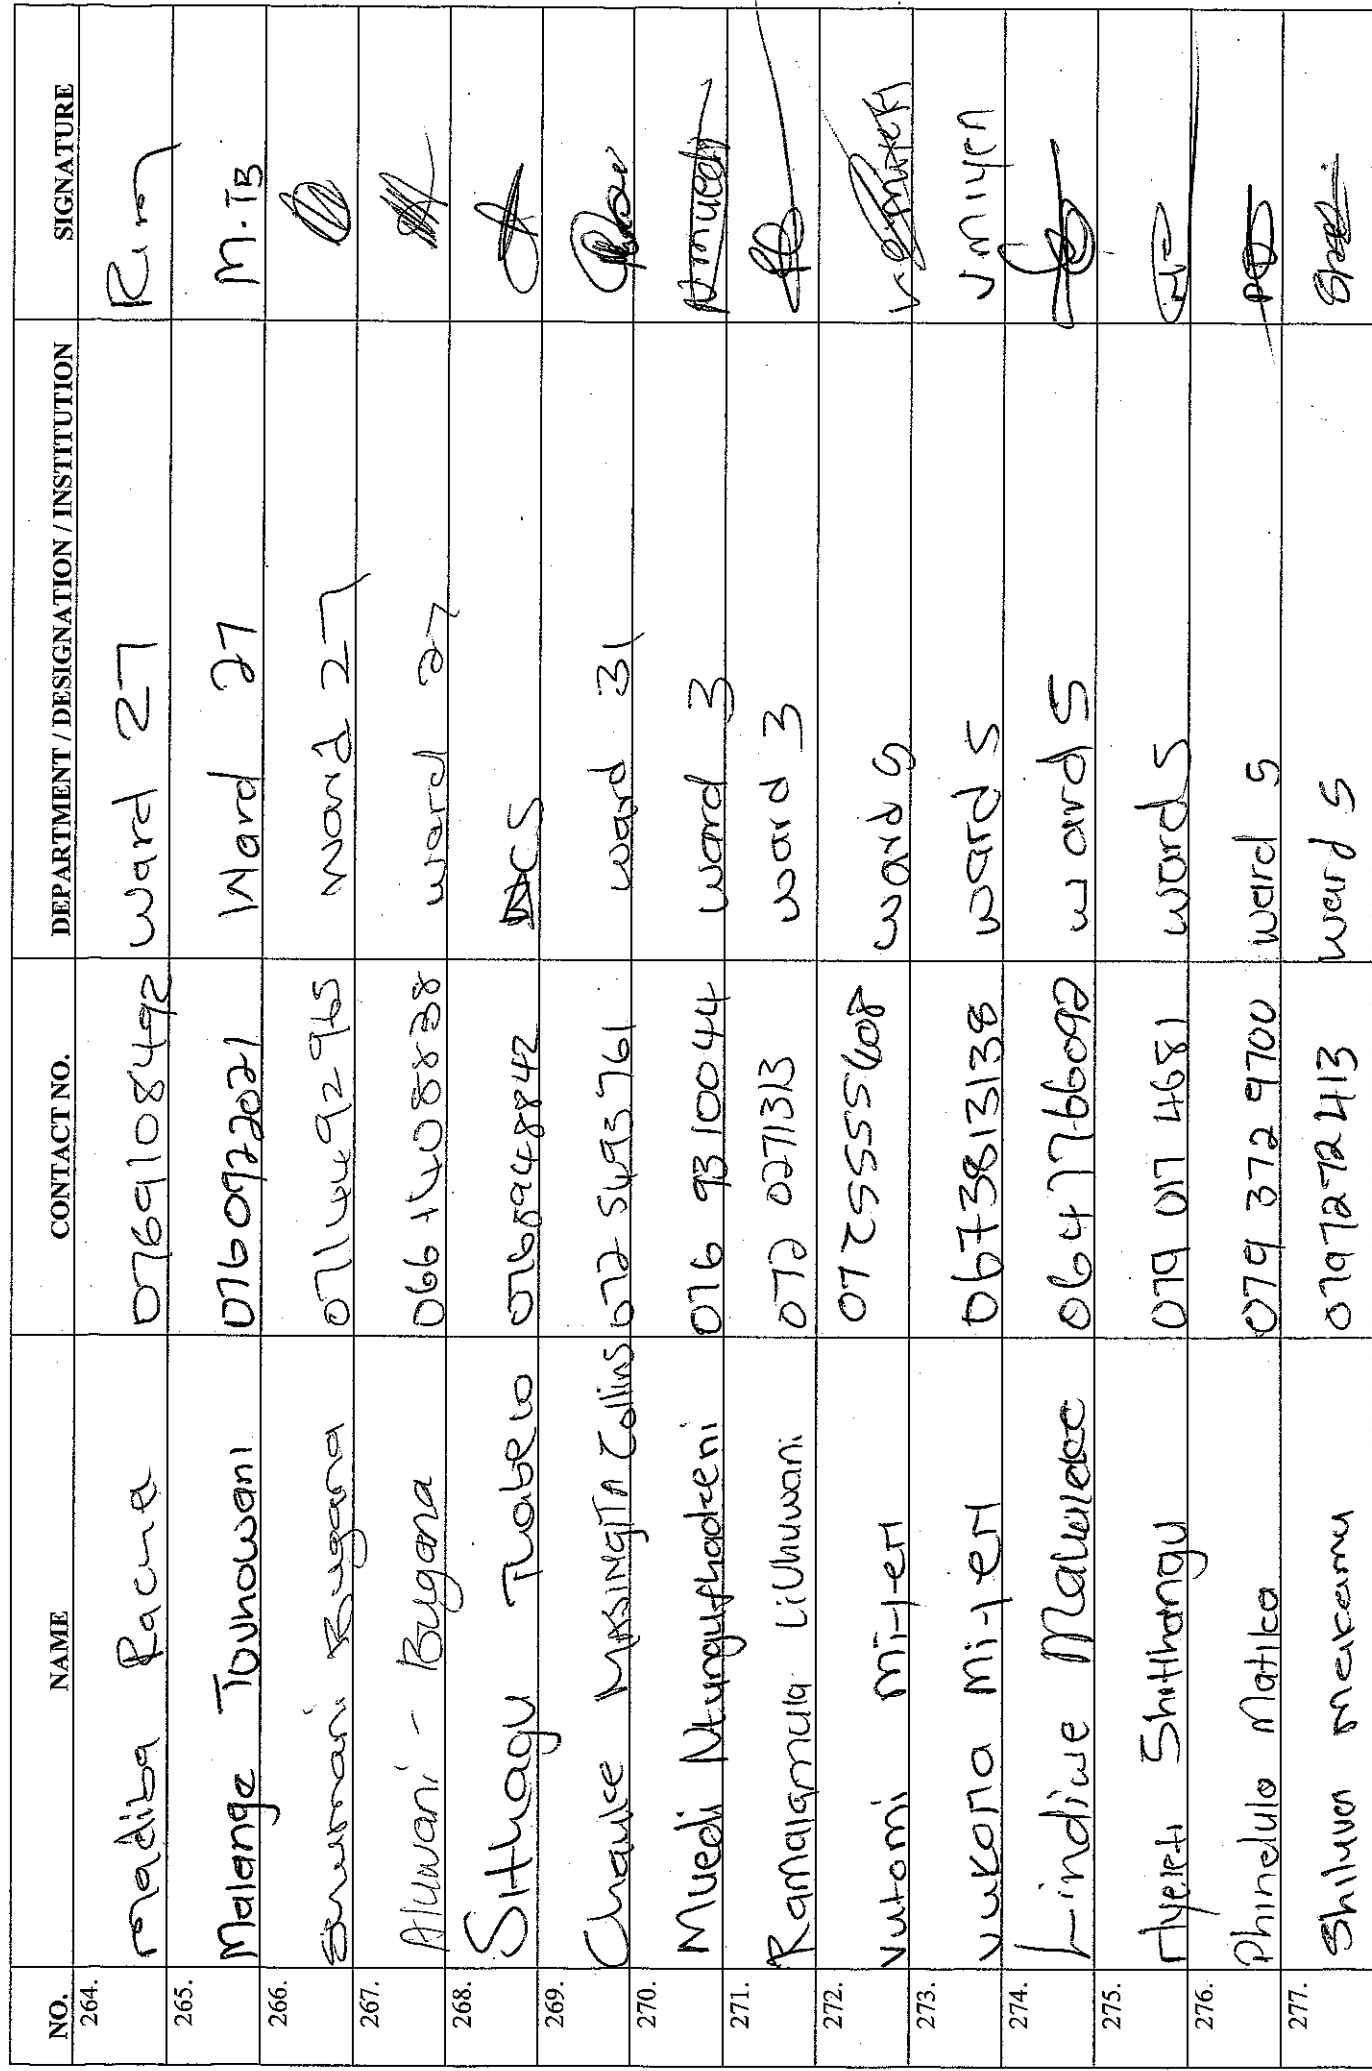 NO. NAME CONTACT NO. DEPARTMENT / DESIGNATION / INSTITUTION SIGNATURE
264. Madiba 0769108492 ward 27
265. Malange Tovhowani 0760922021 Ward 27 M.TB
266. Bugana ward 27
267. Aluwani - Bugana ward 27
268. Sithagu Thabelo 0768948842 DCS
269. Chauke MASINGITA Collins 072 5493761 ward 31
270. Muedi Ntungufhadzeni 076 9310044 ward 3 N.muedi
271. Ramalamula Livhuwani 072 0271313 ward 3
272. Vutomi Mi-yen 0725555608 ward 5
273. Vukona Mi-yen 0673813138 ward 5 V miyen
274. Lindiwe 0647766092 ward 5
275. Hyeleti Shithangu 079 017 4681 ward 5
276. Phindulo Matika 079 372 9700 ward 5
277. Shiluva makamu 0797272413 ward 5